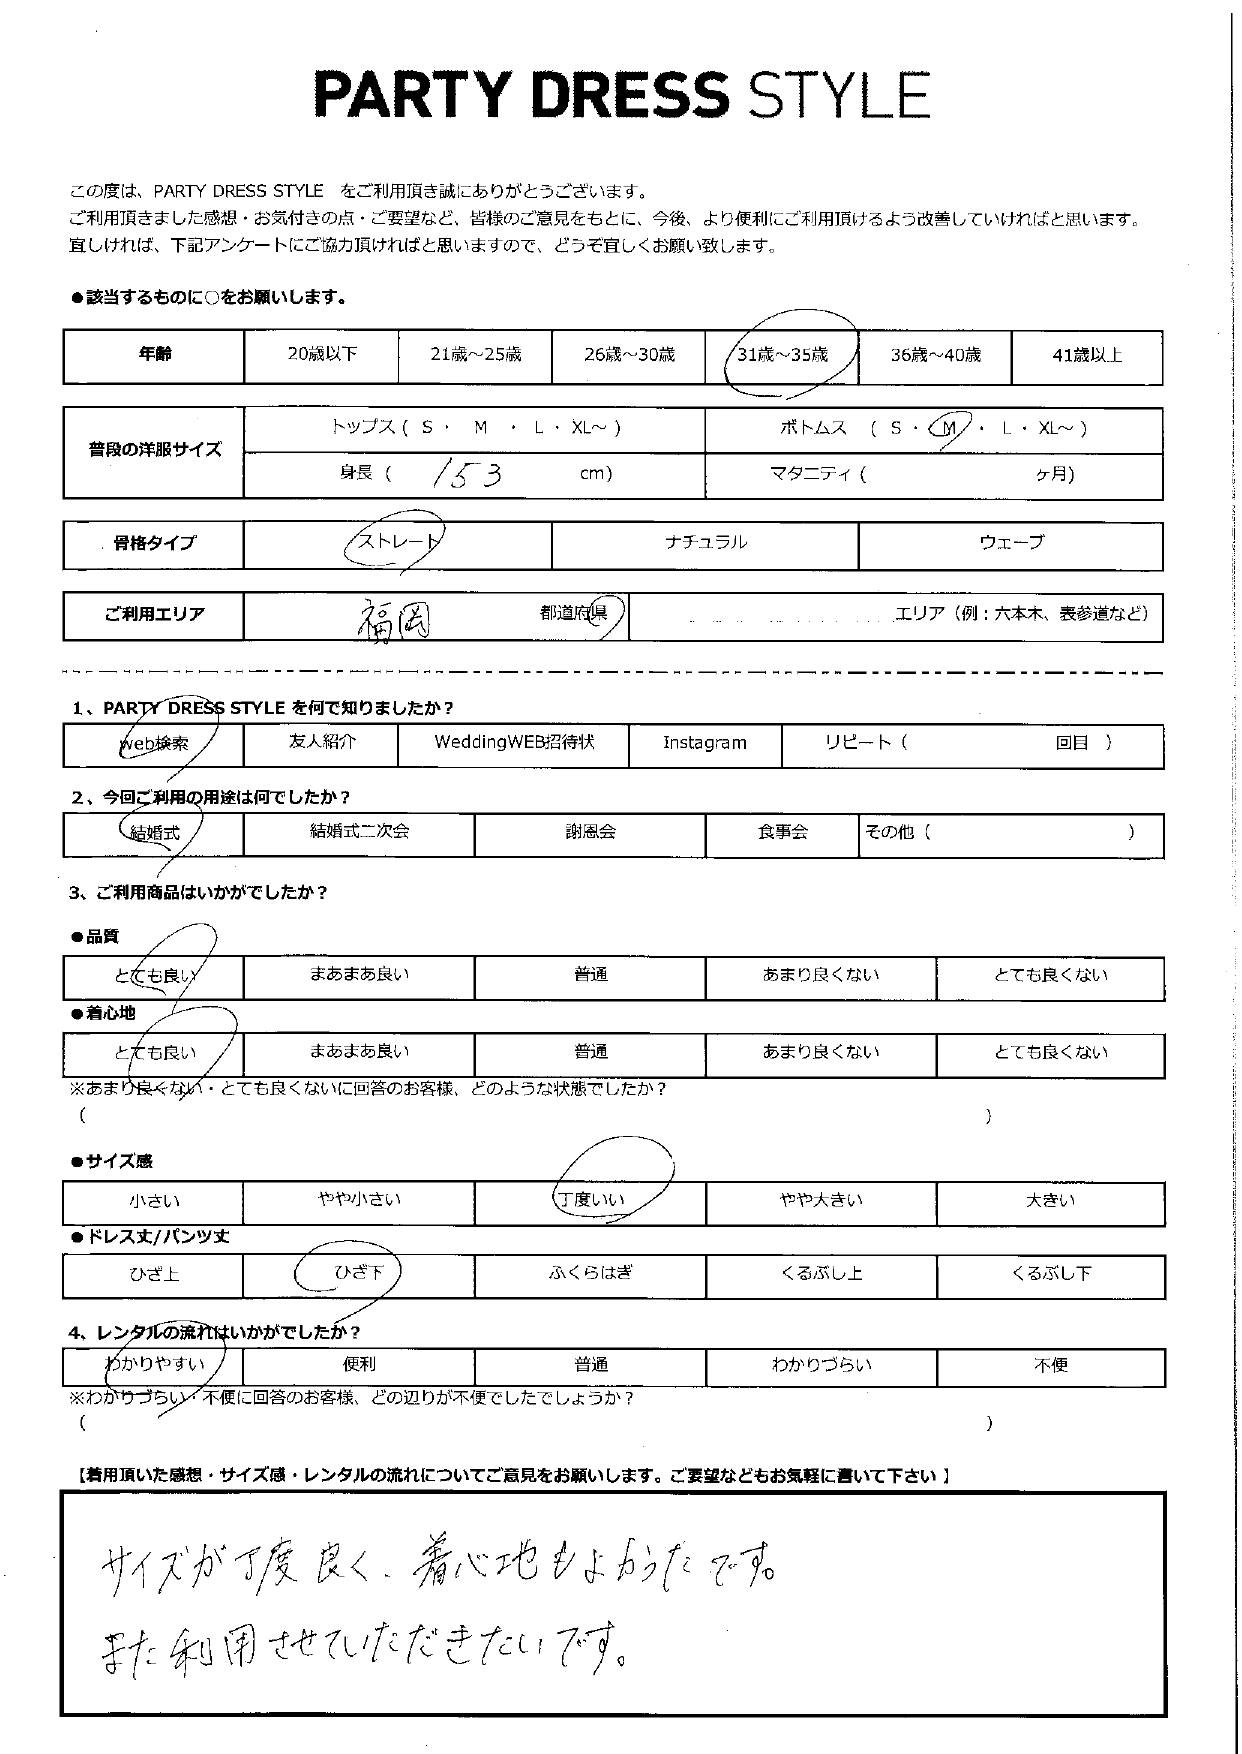 PARTY DRESS STYLE
この度は、PARTY DRESS STYLE をご利用頂き誠にありがとうございます。
ご利用頂きました感想・お気付きの点・ご要望など、皆様のご意見をもとに、今後、より便利にご利用頂けるよう改善していければと思います。
宜しければ、下記アンケートにご協力頂ければと思いますので、どうぞ宜しくお願い致します。
●該当するものに○をお願いします。
年齢 20歳以下 21歳～25歳 26歳～30歳 31歳～35歳 36歳～40歳 41歳以上
普段の洋服サイズ トップス ( S ・ M ・ L ・ XL～ ) ボトムス ( S ・ M ・ L ・ XL～ )
身長 ( 153 cm) マタニティ ( ヶ月)
骨格タイプ ストレート ナチュラル ウェーブ
ご利用エリア 福岡 都道府県 エリア（例：六本木、表参道など）
1、PARTY DRESS STYLE を何で知りましたか？
web検索 友人紹介 WeddingWEB招待状 Instagram リピート ( 回目 )
2、今回ご利用の用途は何でしたか？
結婚式 結婚式二次会 謝恩会 食事会 その他 ( )
3、ご利用商品はいかがでしたか？
●品質
とても良い まあまあ良い 普通 あまり良くない とても良くない
●着心地
とても良い まあまあ良い 普通 あまり良くない とても良くない
※あまり良くない・とても良くないに回答のお客様、どのような状態でしたか？
( )
●サイズ感
小さい やや小さい 丁度いい やや大きい 大きい
●ドレス丈/パンツ丈
ひざ上 ひざ下 ふくらはぎ くるぶし上 くるぶし下
4、レンタルの流れはいかがでしたか？
わかりやすい 便利 普通 わかりづらい 不便
※わかりづらい・不便に回答のお客様、どの辺りが不便でしたでしょうか？
( )
【着用頂いた感想・サイズ感・レンタルの流れについてご意見をお願いします。ご要望などもお気軽に書いて下さい】
サイズが丁度良く、着心地もよかったです。
また利用させていただきたいです。